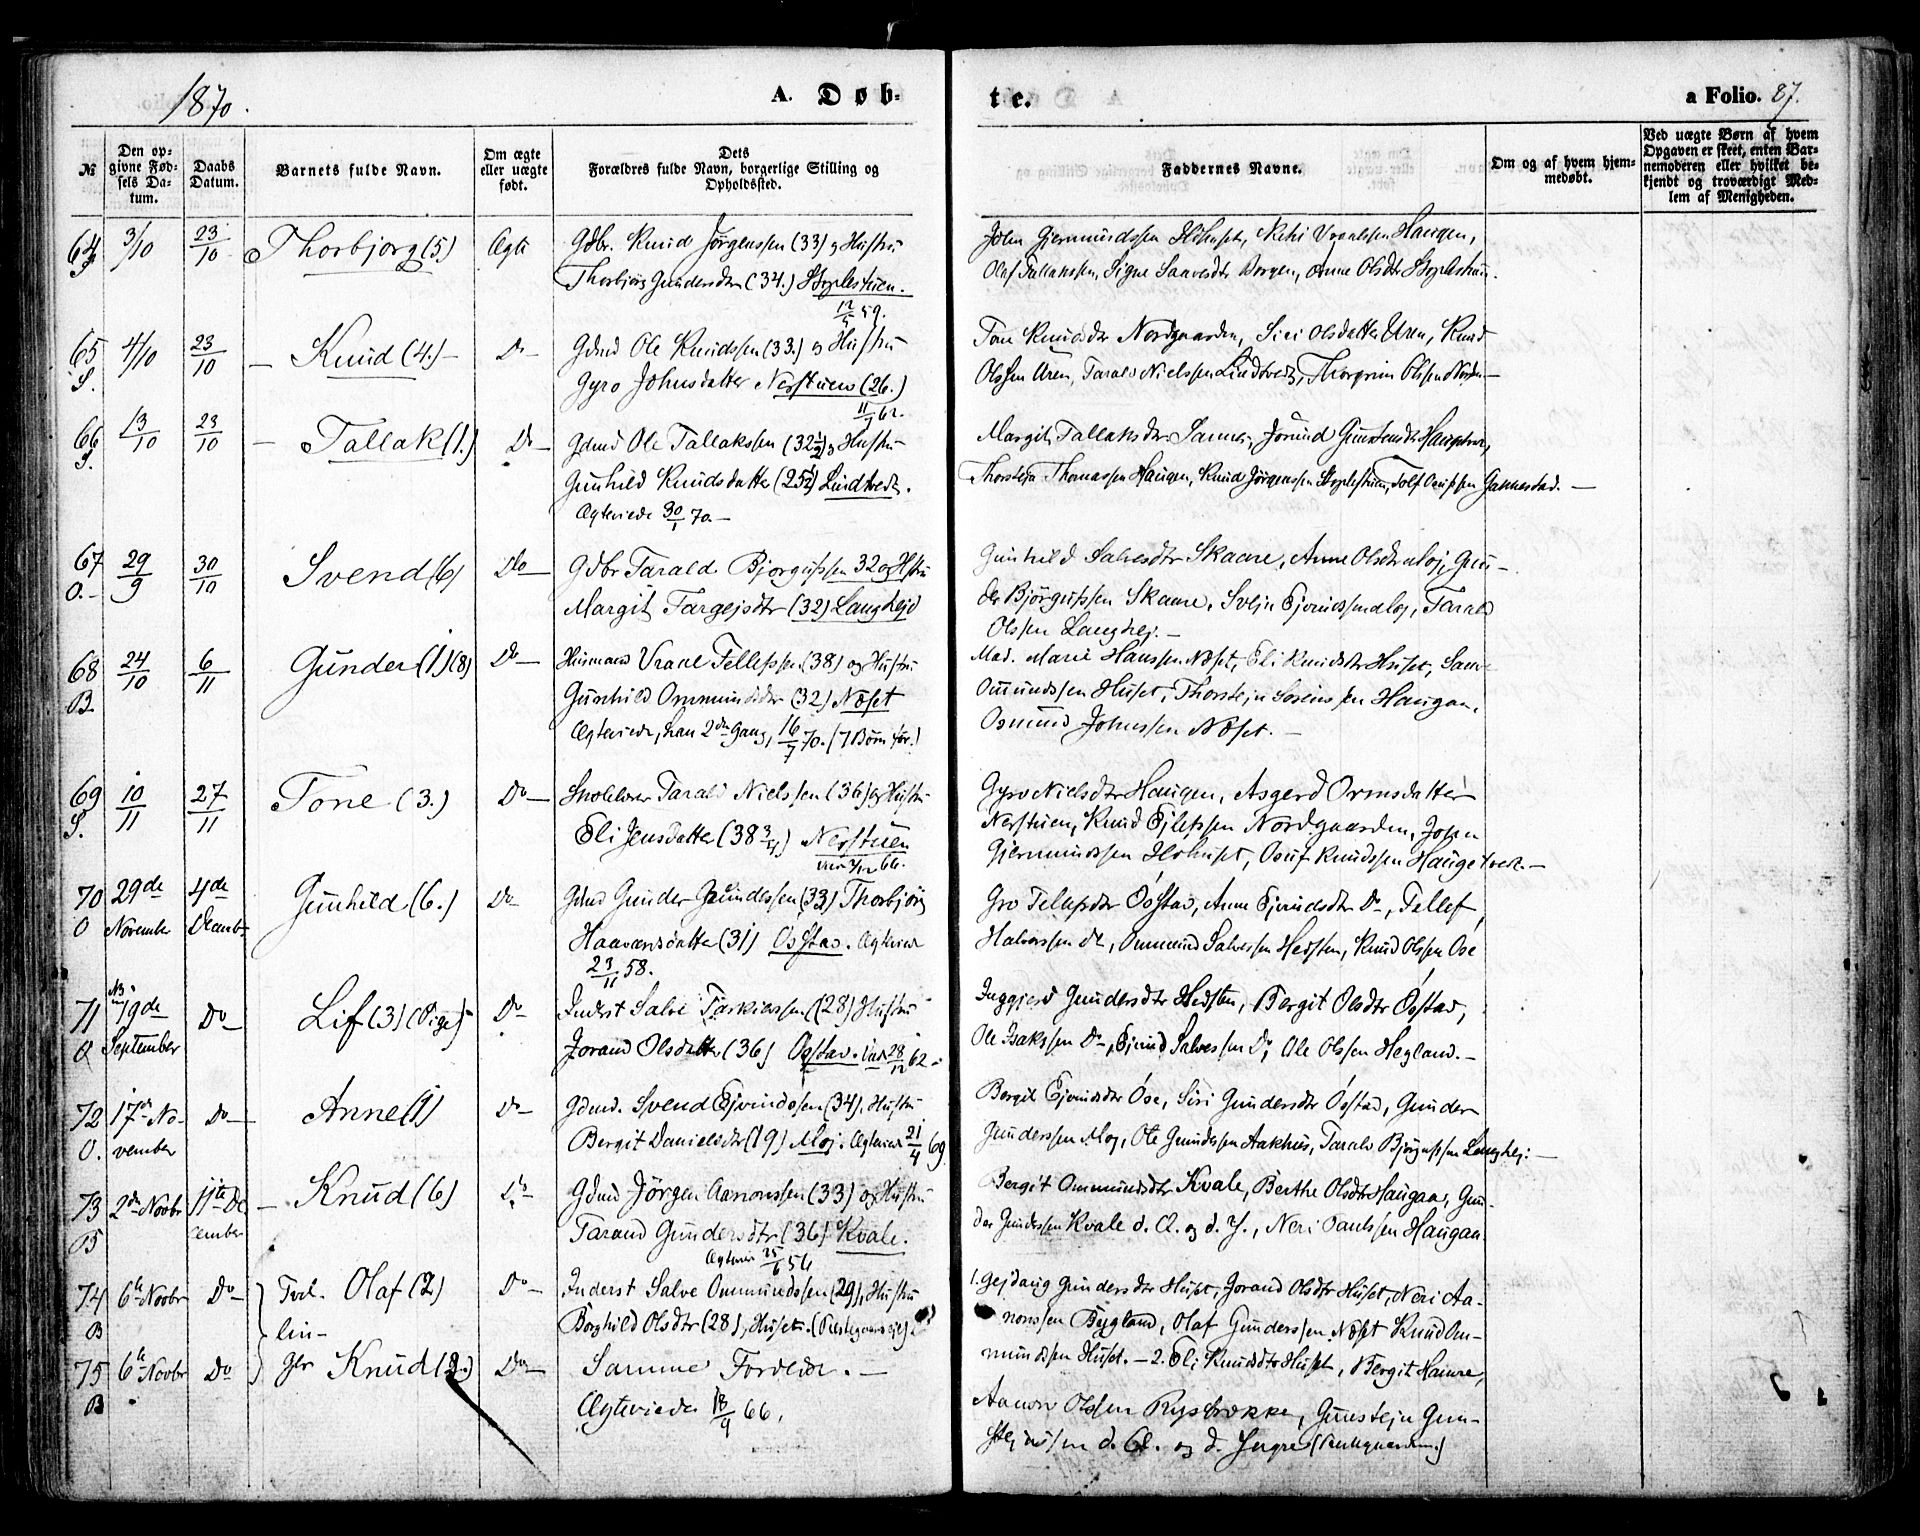 1870.
A. Døb-
te.
a Folio. 87.
№
Den op-
givne Fød-
sels Da-
tum.
Daabs
Datum.
Barnets fulde Navn.
Om ægte
eller uægte
født.
Dets
Forældres fulde Navn, borgerlige Stilling og
Opholdssted.
Faddernes Navne.
Om og af hvem hjem-
medøbt.
Ved uægte Børn af hvem
Opgaven er skeet, enten Bar-
nemoderen eller hvilket be-
kjendt og troværdigt Med-
lem af Menigheden.
64 3/10 23/10 Thorbjorg (5) Ægte Gdbr. Knud Jörgenssen (33) og Hustru
S. Thorbjörg Gundersdtr (34.) Stoplestuen.
12/5 59.
John Gjermundssen Uphuset, Haugen,
Olaf Tallakssen, Signe Saavesdtr Borgen, Anne Olsdtr Stoplestuen.
65 4/10 23/10 – Knud (4.) – Do – Gdmd Ole Knudssen (33.) og Hustru
S. Gyro Johnsdatter Nerstuen (26.)
11/7 62.
Tone Knudsdtr Nordgaarden, Siri Olsdatter Uren, Knud
Olssen Uren, Tarald Nielssen Lindtvedt, Thorgrim Olssen
66 13/10 23/10 – Tallak (1.) Do – Gdmd Ole Tallakssen (32½) og Hustru
S. Gunhild Knudsdatter (25½) Lindtvedt.
Ægteviede 30/1 70. –
Margit Tallaksdtr Jorund
Thorstein Thomassen Haugen, Knud Jörgenssen Stoplestuen, –
67 29/9 30/10 Svend (6) Do – Gdbr Tarald Bjorgufssen 32 og Hstru
O. – Margit Targejsdtr (32) Langhejd
Gunhild Salvesdtr Skaare, Anne Olsdtr Moj, Gun-
der Björgufssen Skaare, Svejn Ejvindssen Moj, Tarald
Olssen Langhej. –
68 24/10 6/11 Gunder (1) (8) Do – Husmand Vraal Tellefssen (38) og Hustru
B. Gunhild Ommundsdtr (32) Næset
Ægteviede, han 2den Gang, 16/7 70. (7 Børn før.)
Mad. Marie Hanssen Næset, Eli Knudsdtr Huset,
Omundssen Huset, Thorstejn Sorenssen Haugaa,
Osmund Johnssen Næset. –
69 10/11 27/11 Tone (3.) Do – Skolelærer Tarald Nielssen (36) og Hustru
S. Eli Jensdatter (38 3/4) Nerstuen
Gyro Nielsdtr Haugen, Asgerd Ormsdatter
Nerstuen, Knud Ejlefssen Nordgaarden, John
Gjermundssen Uphuset, Knudssen Haugetvedt. –
70 29de 4de Gunhild (6.) Do Gdmd Gunder Gunderssen (33) Thorbjörg
O November Decemb. Haavorsdatter (31) Osstad. Ægteviede
23/11 58.
Gro Tellefsdtr Osstad, Anne Ejvindsdtr Do, Tellef
Halvorssen do, Ommund Salvessen Hedsten, Knud Olssen Ose
NB.
71 19de Do – Lif (3) (Pige) – Do – Inderst Salve Tarkielssen (28) Hustru
O September Jorand Olsdatter (36) Osstad. 28/12 62 –
Inggjerd Gundersdtr Hedsten, Bergit Olsdtr Osstad,
Ole Isakssen Do, Ejvind Salvessen Do, Ole Olssen Hegland. –
72 17de No- Do – Anne (1) Do – Gdmd. Svend Ejvindssen (34), Hustru
O. vember Bergit Danielsdtr (19) Moj. Ægteviet 21/4 69
Bergit Ejvindsdtr Ose, Siri Gundersdtr Osstad, Gunder
Gunderssen Moj, Ole Gunderssen Aakhus, Tarald Björgufssen Langhej. –
73 2de Novbr 11te De- – Knud (6) Do – Gdmd Jörgen Aanonssen (33) og Hustru
B cember Tarand Gundersdtr (36) Kvale.
Ægteviet 25/6 56
Bergit Ommundsdtr Kvale, Berthe Olsdtr Haugaa, Gun-
der Gunderssen Kvale d. Æ. og d. Y., Neri Paulssen Haugaa.
74 6te Novbr Do – Tvil- Olaf (2) Do – Inderst Salve Ommundssen (29), Hustru
B lin- Borghild Olsdtr (28), Huset.
1. Gejdaug Gundersdtr Huset, Jorand Olsdtr Huset, Neri Aa-
nonssen Bygland, Olaf Gunderssen Næset Knud Om-
75 6te Novbr Do ger Knud (2.) Do – Samme Forældre. –
B Ægteviede 18/9 66.
mundssen Huset. – 2. Eli Knudsdtr Huset, Bergit Haure,
Aanon Olssen Rysbrække, Gunstejn Gun-
stejnssen d. Æl. og d. Yngre